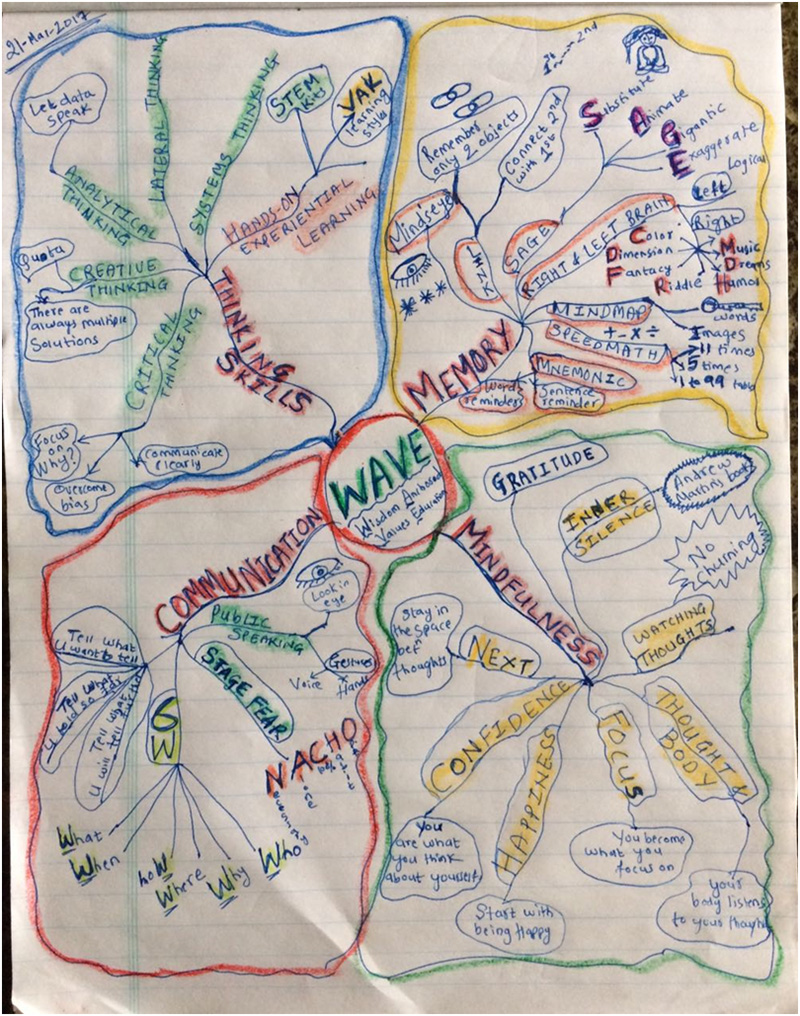 21-Mar-2017
WAVE
Wisdom Anchored
Values Education
THINKING
SKILLS
Let data
speak
ANALYTICAL
THINKING
LATERAL THINKING
SYSTEMS THINKING
STEM
Kits
VAK
learning
styles
HANDS-ON
EXPERIENTIAL
LEARNING
Quota
CREATIVE
THINKING
There are
always multiple
Solutions
CRITICAL
THINKING
Focus
on
Why?
Overcome
bias
Communicate
clearly
MEMORY
2nd
Remember
only 2 objects
Connect 2nd
with 1st
LINK
Mindseye
SAGE
Substitute
Animate
Gigantic
Exaggerate
RIGHT & LEFT BRAIN
Logical
Left
Right
Color
Dimension
Fantacy
Riddle
Music
Dreams
Humor
MINDMAP
words
Images
+ - x ÷
SPEEDMATH
11 times
5 times
1 to 99 table
MNEMONIC
Words
reminders
Sentence
reminder
COMMUNICATION
PUBLIC
SPEAKING
Look in
eye
Gestures
Voice
Hands
STAGE FEAR
NACHO
Tell what
u want to tell
Tell what
u told so
Tell what
u will tell
5W
What
When
hoW
Where
Why
Who
MINDFULNESS
GRATITUDE
INNER
SILENCE
Andrew
Martin's book
No
churning
WATCHING
THOUGHTS
Stay in
the space
bet
thoughts
NEXT
CONFIDENCE
You
are what
you think
about yourself
HAPPINESS
Start with
being Happy
FOCUS
You become
what you
focus on
THOUGHT &
BODY
your
body listens
to your thought